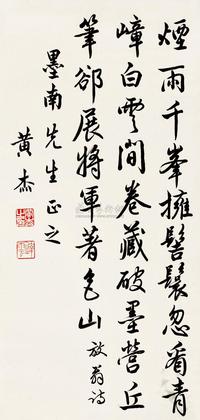 煙雨千峯擁髻鬟忽看青
嶂白雲間卷藏破墨營丘
筆郤展將軍著色山 放翁詩
墨南先生正之
黄杰